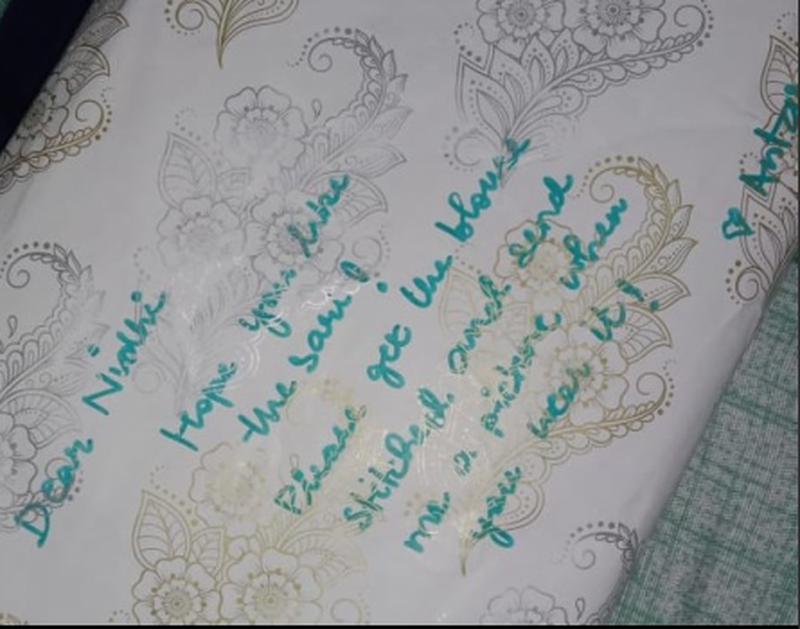 Dear Nimmi
Hope you like
the Saree!
Please get the blouse
stitched and send
me a picture when
you wear it!